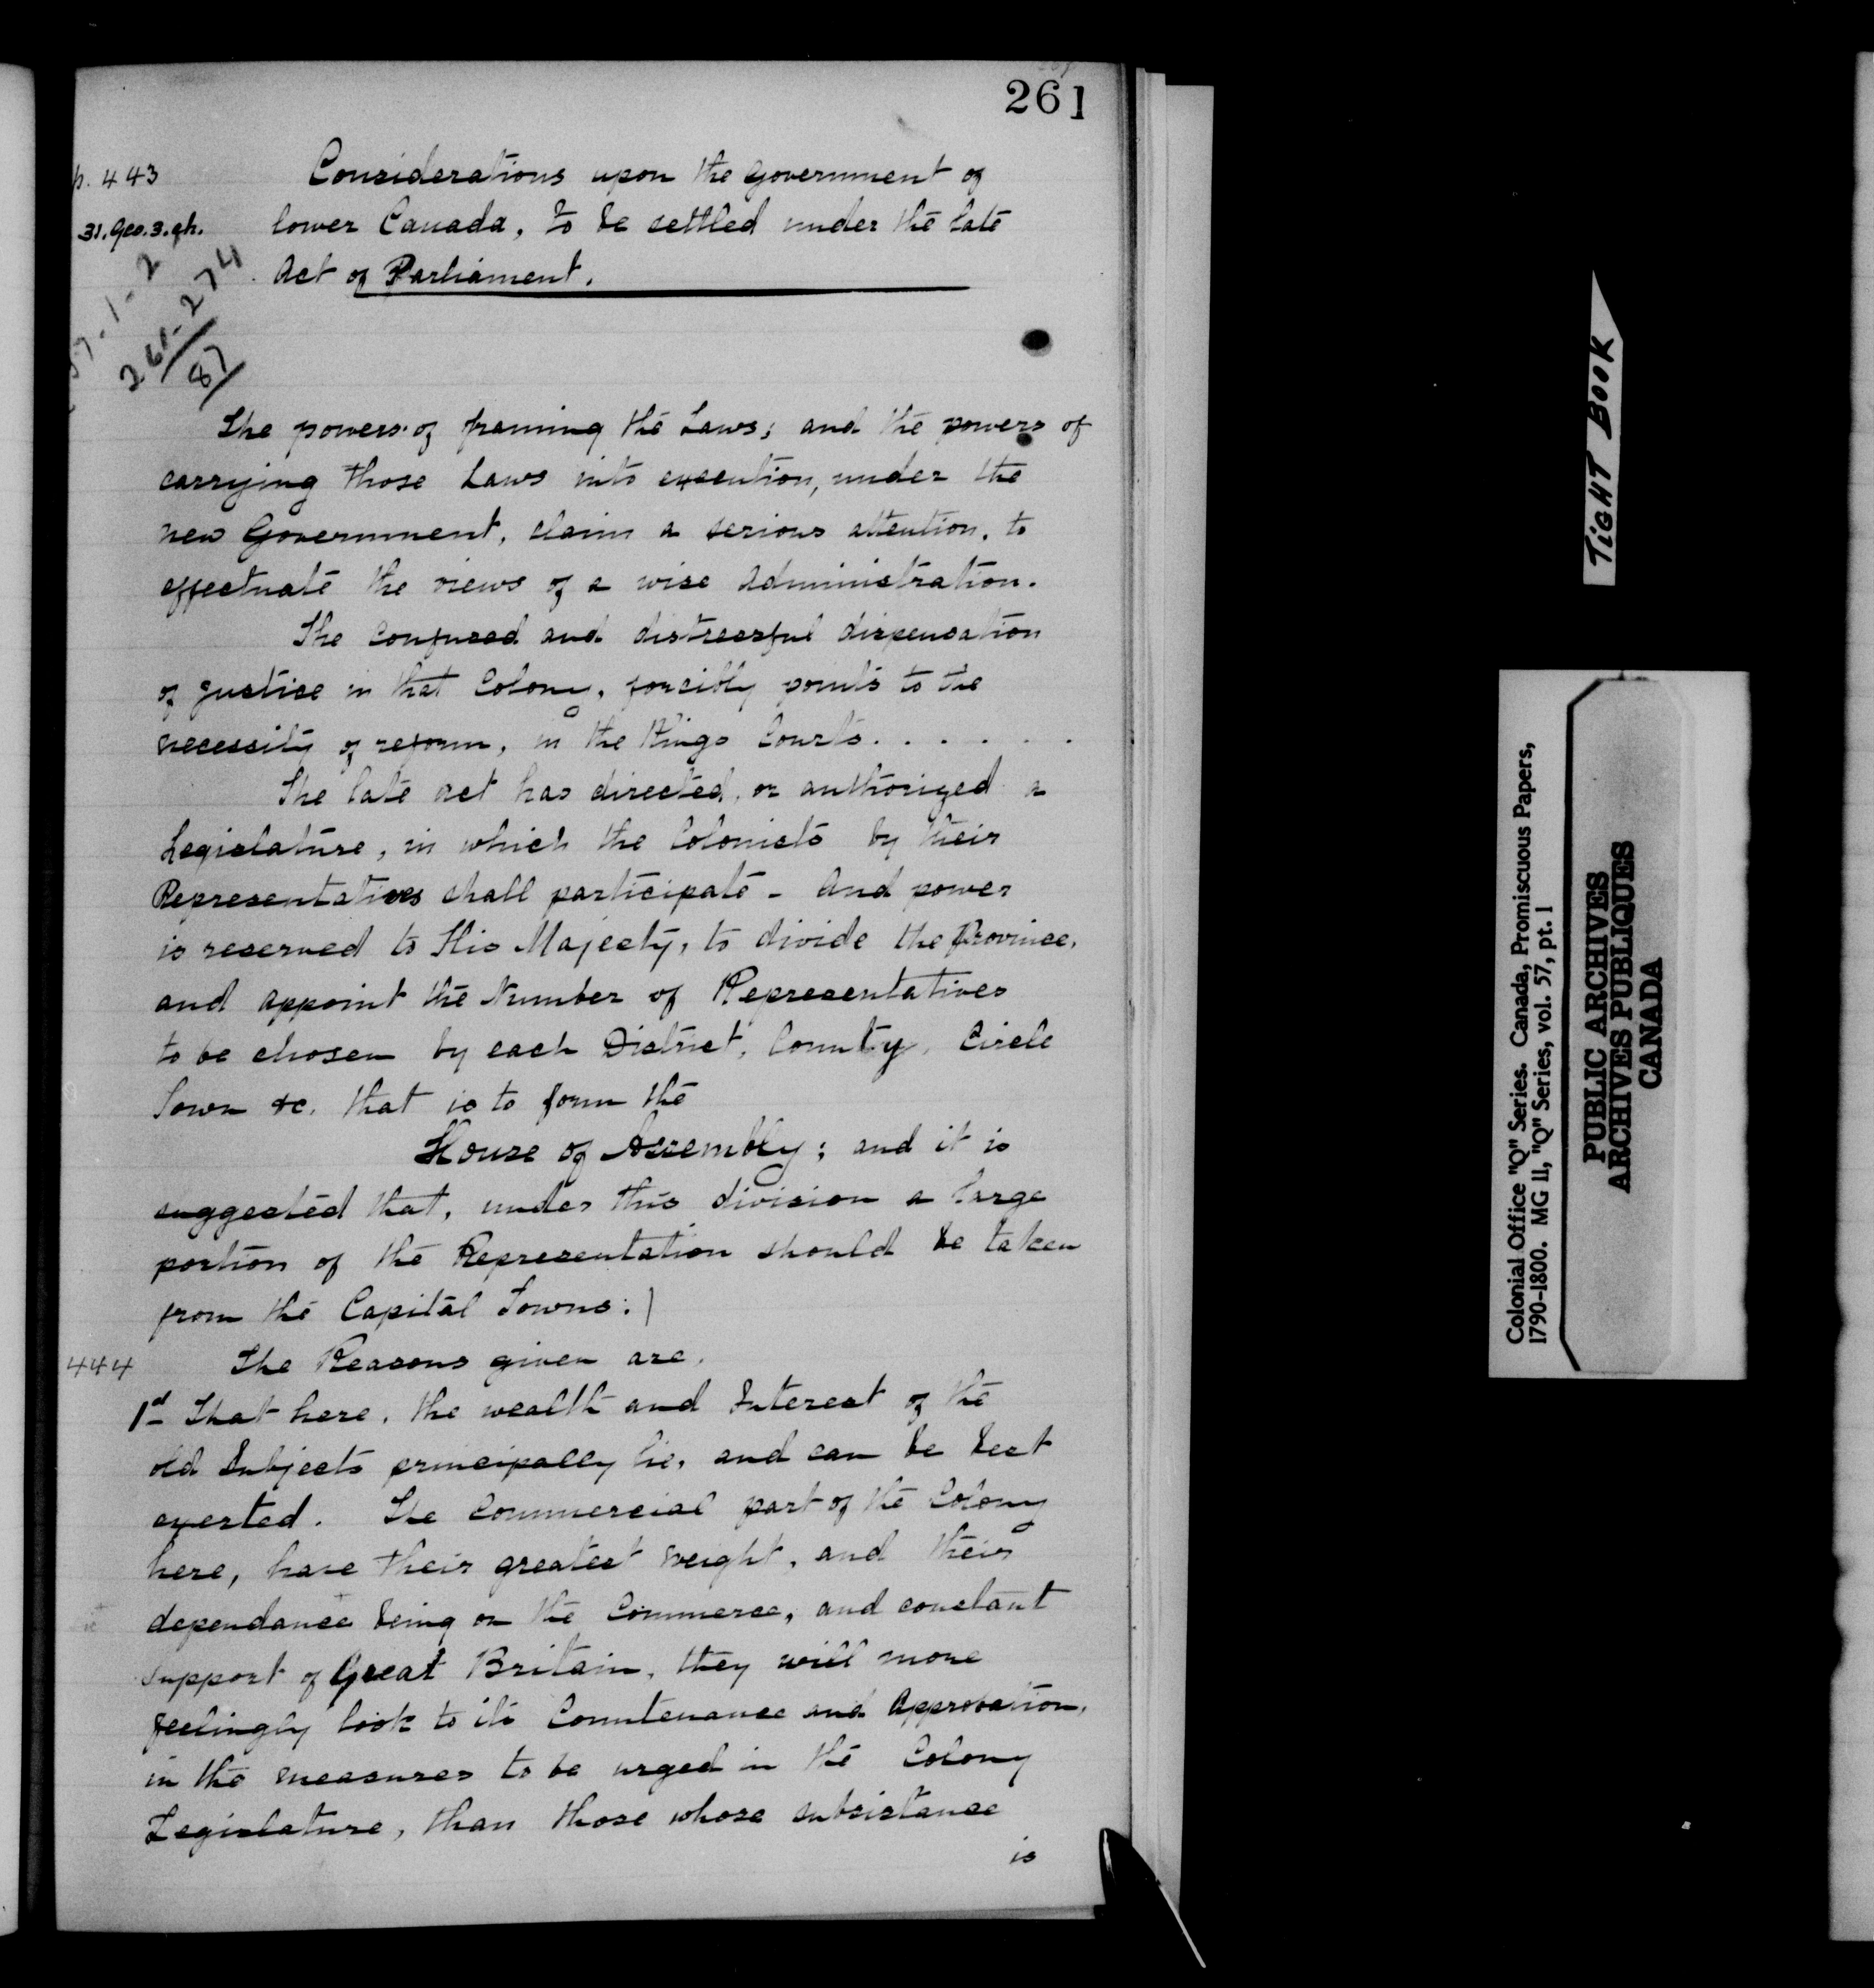 261
p. 443
Considerations upon the Government of
31. Geo. 3. ch.
lower Canada, to be settled under the late
Act of Parliament.
261-274
87
The powers of framing the Laws; and the powers of
carrying those Laws into execution, under the
new Government, claim a serious attention, to
effectuate the views of a wise Administration.
The confused and distressful dispensation
of justice in that Colony, forcibly points to the
necessity of reform, in the Kings Courts . . . . . .
The late act has directed, or authorized a
Legislature, in which the Colonists by their
Representatives shall participate - And power
is reserved to His Majesty, to divide the Province,
and appoint the Number of Representatives
to be chosen by each District, County, Circle
Town &c. that is to form the
House of Assembly; and it is
suggested that, under this division a large
portion of the Representation should be taken
from the Capital Towns:
444
The Reasons given are,
1st That here, the wealth and Interest of the
old Subjects principally lie, and can be best
exerted. The Commercial part of the Colony
here, have their greatest weight, and their
dependance being on the Commerce, and constant
Support of Great Britain, they will more
feelingly look to its Countenance and Approbation,
in the measures to be urged in the Colony
Legislature, than those whose subsistance
is
TIGHT BOOK
Colonial Office "Q" Series. Canada, Promiscuous Papers,
1790-1800. MG 11, "Q" Series, vol. 57, pt. 1
PUBLIC ARCHIVES
ARCHIVES PUBLIQUES
CANADA